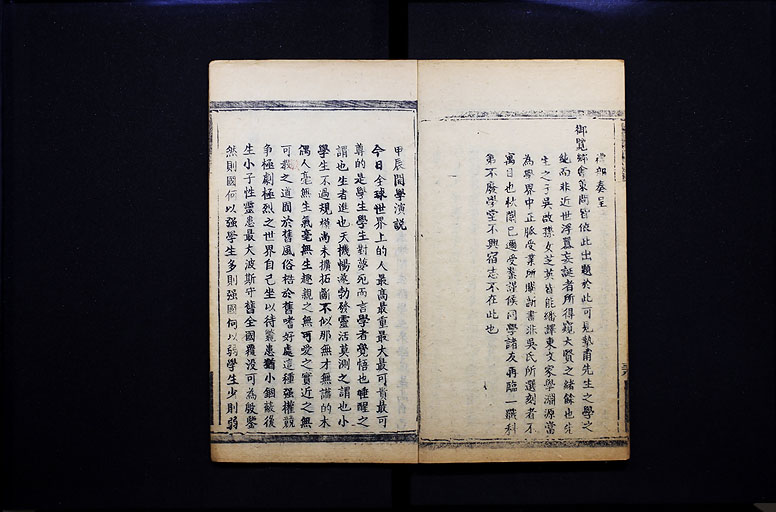 禮部奏呈
御覽鄉會策問皆依此出題於此可見摯甫先生之學之
純而非近世浮囂妄誕者所得窺大賢之緒餘也先
生之子吳啟孫女芝英皆能繙譯東文家學淵源當
為學界中正脈受業所購新書非吳氏所選刻者不
寓目也秋闈已邇受業謹候同學諸友再臨一蹶科
第不廢學堂不興宿志不在此也
甲辰開學演說
今日全球世界上的人最高最重最大最可貴最可
尊的是學生學生對夢死而言學者覺悟也睡醒之
謂也生者進也天機暢遂勃發靈活莫測之謂也小
學生不過規模尚未擴拓斷不似那無才無譜的木
偶人毫無生氣毫無生趣親之無可愛之實近之無
可敬之道囿於舊風俗梏於舊嗜好處這種强權競
爭極劇極烈之世界自己坐以待斃患猶小錮蔽後
生小子性靈患最大波斯守舊全國覆没可為殷鑒
然則國何以强學生多則强國何以弱學生少則弱